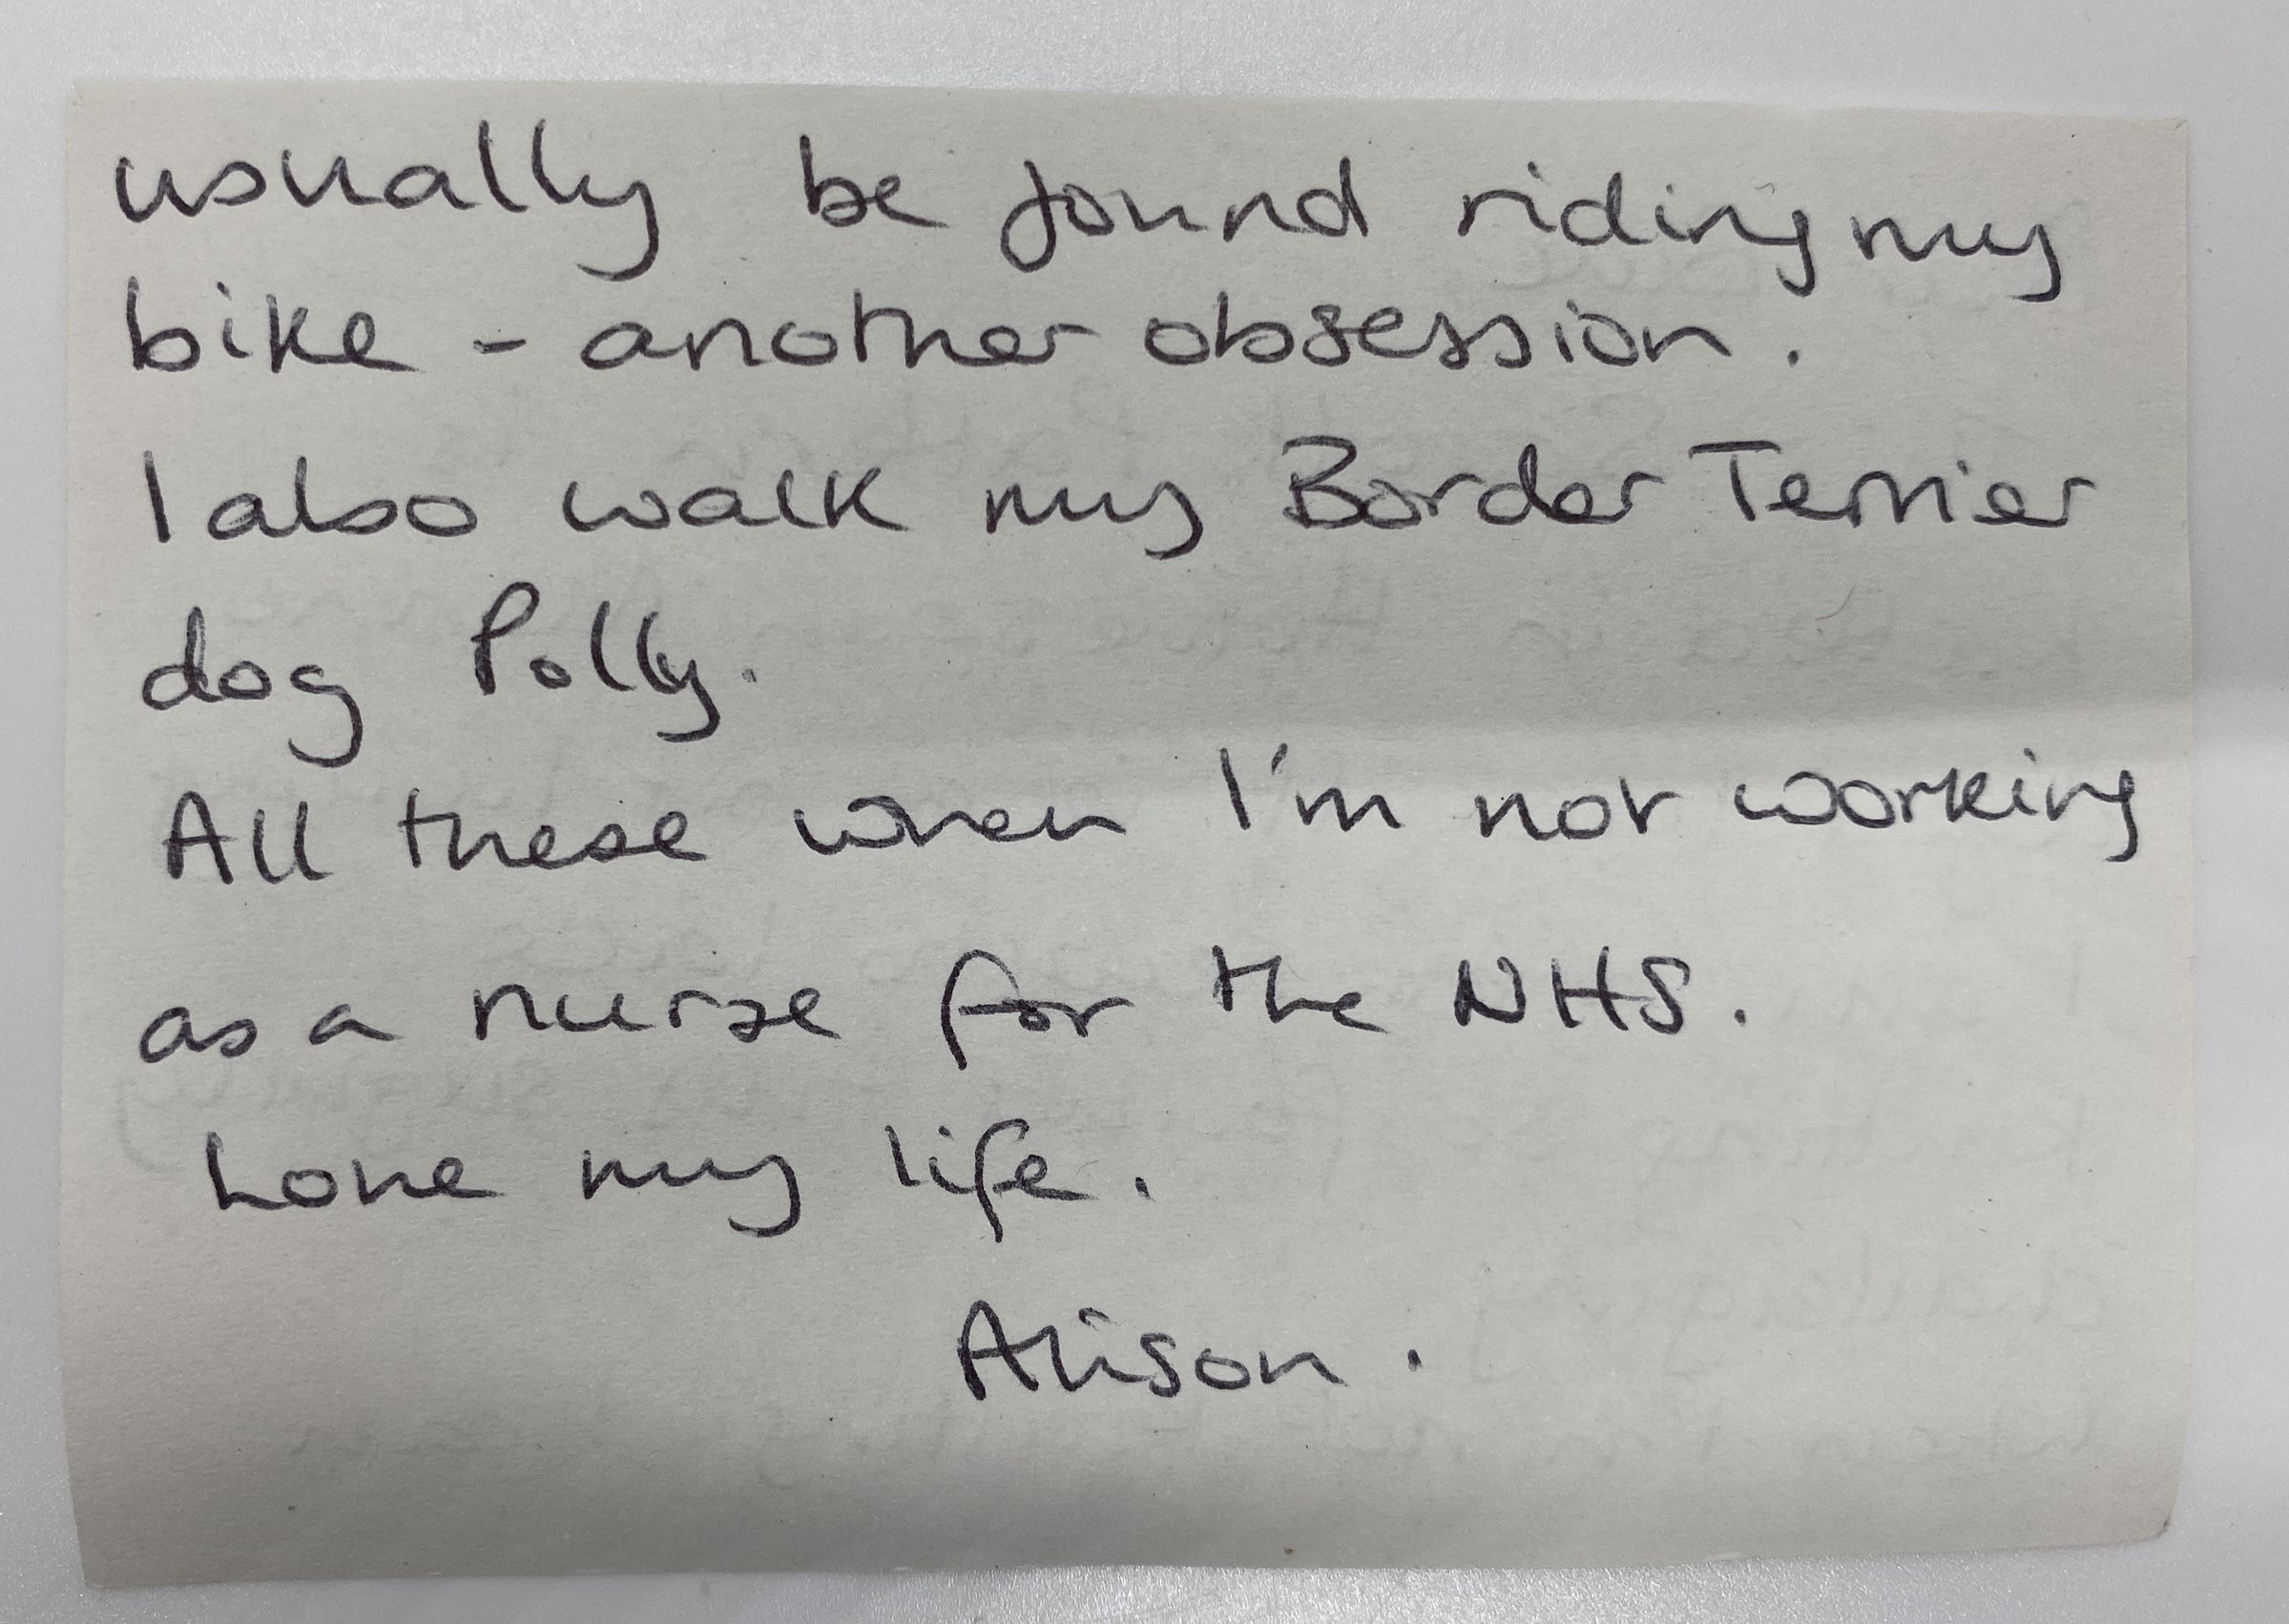 usually be found riding my
bike - another obsession.
I also walk my Border Terrier
dog Polly.
All these when I'm not working
as a nurse for the NHS.
Love my life.
Alison.